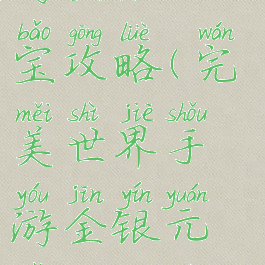 bǎo gōng lüè wán
宝攻略(完
měi shì jiè shǒu
美世界手
yóu jīn yín yuán
游金银元